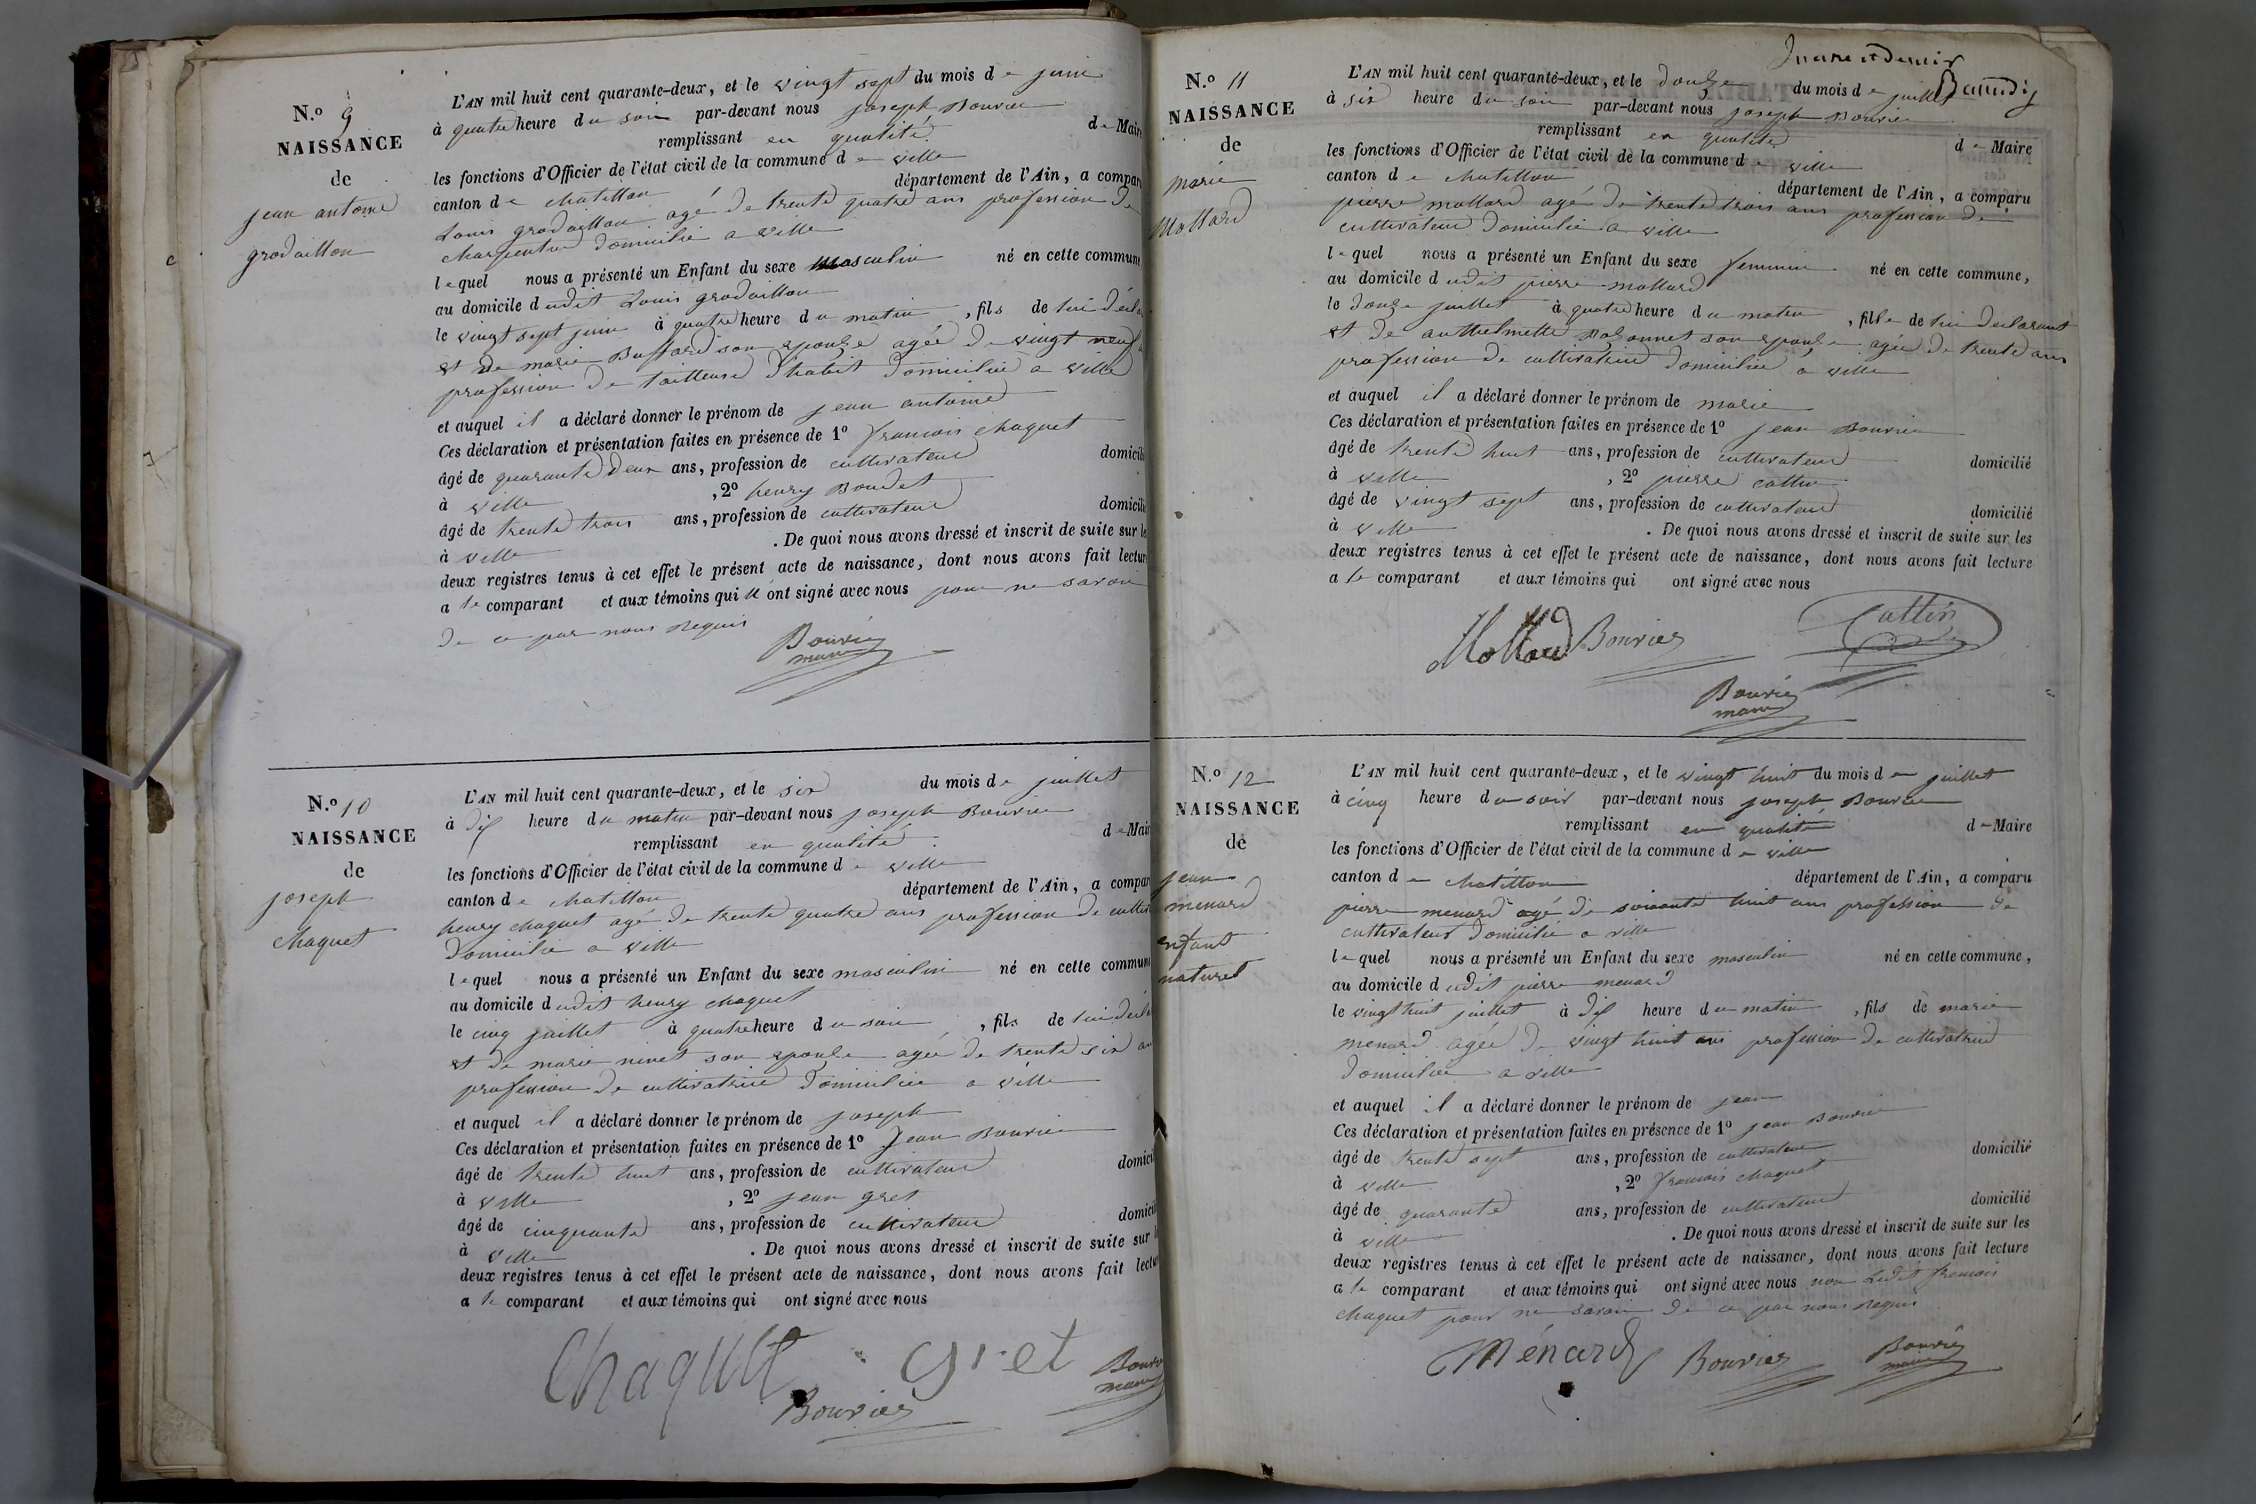 N.o 9
NAISSANCE
de
jean antoine
grodaillon
L'AN mil huit cent quarante-deux, et le vingt sept du mois de juin
à quatre heure du soir par-devant nous joseph Bouvier
remplissant en qualité de Maire
les fonctions d'Officier de l'état civil de la commune de ville
canton de chatillon département de l'Ain, a compar
Louis grodaillon agé de trente quatre ans profession de
charpentier domicilié a ville
lequel nous a présenté un Enfant du sexe masculin né en cette commune
au domicile dudit Louis grodaillon
le vingt sept juin à quatre heure du matin, fils de lui décla
et de marie Buffard son epouse agée de vingt neuf
profession de tailleuse d'habit domiciliée a ville
et auquel il a déclaré donner le prénom de jean antoine
Ces déclaration et présentation faites en présence de 1o francois chaquet
âgé de quarante deux ans, profession de cultivateur domicili
à ville, 2o henry Boudet
âgé de trente trois ans, profession de cultivateur domicili
à ville. De quoi nous avons dressé et inscrit de suite sur le
deux registres tenus à cet effet le présent acte de naissance, dont nous avons fait lectur
a le comparant et aux témoins qui n ont signé avec nous pour ne savoir
de ce par nous requis
Bouvier
maire
N.o 10
NAISSANCE
de
joseph
chaquet
L'AN mil huit cent quarante-deux, et le six du mois de juillet
à dix heure du matin par-devant nous joseph Bouvier
remplissant en qualité de Mair
les fonctions d'Officier de l'état civil de la commune de ville
canton de chatillon département de l'Ain, a compar
henry chaquet agé de trente quatre ans profession de cultiv
domicilié a ville
lequel nous a présenté un Enfant du sexe masculin né en cette commun
au domicile dudit henry chaquet
le cinq juillet à quatre heure du soir, fils de lui décla
et de marie ninet son epouse agée de trente six an
profession de cultivatrice domiciliée a ville
et auquel il a déclaré donner le prénom de joseph
Ces déclaration et présentation faites en présence de 1o Jean Bouvier
âgé de trente huit ans, profession de cultivateur domicil
à ville, 2o jean gret
âgé de cinquante ans, profession de cultivateur domicil
à ville. De quoi nous avons dressé et inscrit de suite sur l
deux registres tenus à cet effet le présent acte de naissance, dont nous avons fait lectu
a le comparant et aux témoins qui ont signé avec nous
Chaquet gret Bouvier
maire
Bouvier
Baudy
N.o 11
NAISSANCE
de
marie
Mollard
L'AN mil huit cent quarante-deux, et le douze du mois de juillet
à six heure du soir par-devant nous joseph Bouvier
remplissant en qualité de Maire
les fonctions d'Officier de l'état civil de la commune de ville
canton de chatillon département de l'Ain, a comparu
pierre mollard agé de trente trois ans profession de
cultivateur domicilié a ville
lequel nous a présenté un Enfant du sexe feminin né en cette commune,
au domicile dudit pierre mollard
le douze juillet à quatre heure du matin, fille de lui déclarant
et de anthelmette son epouse agée de trente ans
profession de cultivatrice domiciliée a ville
et auquel il a déclaré donner le prénom de marie
Ces déclaration et présentation faites en présence de 1o jean Bouvier
âgé de trente huit ans, profession de cultivateur domicilié
à ville, 2o pierre cattin
âgé de vingt sept ans, profession de cultivateur domicilié
à ville. De quoi nous avons dressé et inscrit de suite sur les
deux registres tenus à cet effet le présent acte de naissance, dont nous avons fait lecture
a le comparant et aux témoins qui ont signé avec nous
Mollard Bouvier Cattin
Bouvier
maire
N.o 12
NAISSANCE
de
jean
menard
enfant
naturel
L'AN mil huit cent quarante-deux, et le vingt huit du mois de juillet
à cinq heure du soir par-devant nous joseph Bouvier
remplissant en qualité de Maire
les fonctions d'Officier de l'état civil de la commune de ville
canton de chatillon département de l'Ain, a comparu
pierre menard agé de soixante huit ans profession de
cultivateur domicilié a ville
lequel nous a présenté un Enfant du sexe masculin né en cette commune,
au domicile dudit pierre menard
le vingt huit juillet à dix heure du matin, fils de marie
menard agée de vingt huit ans profession de cultivatrice
domiciliée a ville
et auquel il a déclaré donner le prénom de jean
Ces déclaration et présentation faites en présence de 1o jean Bouvier
âgé de trente sept ans, profession de cultivateur domicilié
à ville, 2o francois chaquet
âgé de quarante ans, profession de cultivateur domicilié
à ville. De quoi nous avons dressé et inscrit de suite sur les
deux registres tenus à cet effet le présent acte de naissance, dont nous avons fait lecture
a le comparant et aux témoins qui ont signé avec nous non ledit francois
chaquet pour ne savoir de ce par nous requis
Ménard Bouvier Bouvier
maire